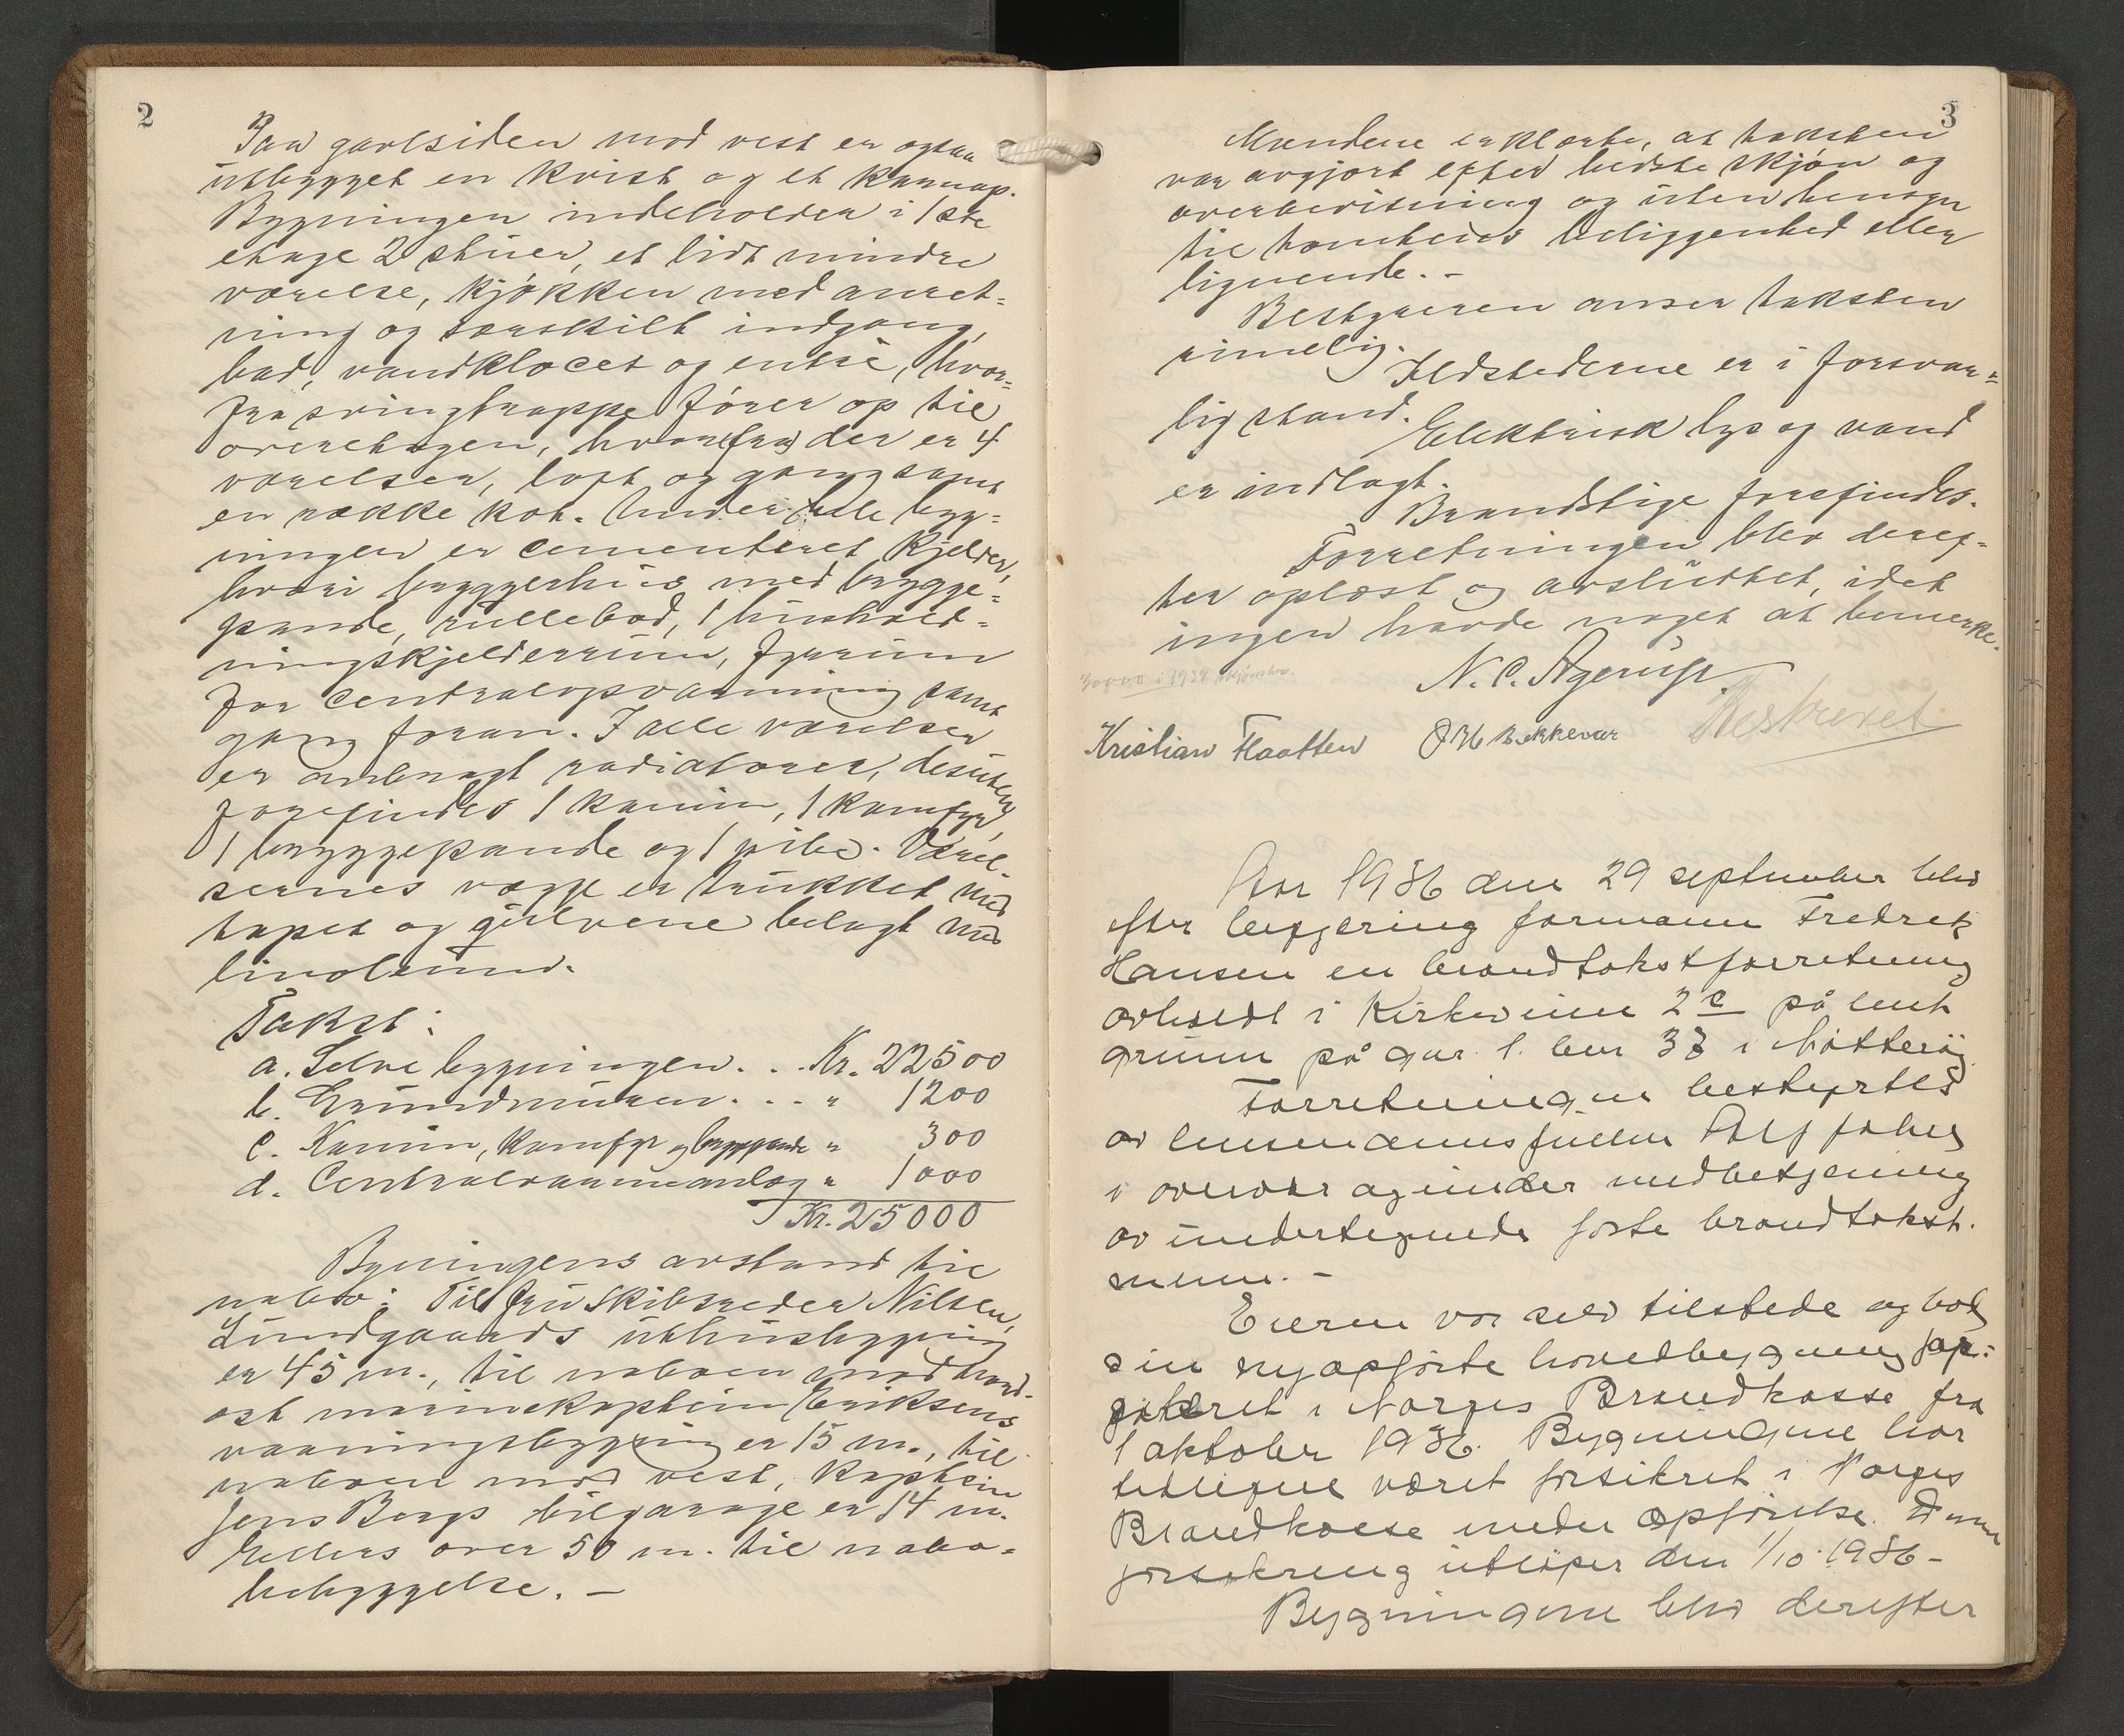 2
Paa gavlsiden mod vest er ogsaa
utbygget en kvist og et karnap.
Bygningen indeholder i 1ste
etage 2 stuer, et lidt mindre
værelse, kjøkken med anret-
ning og særskilt indgang,
bad, vandklocet og entré, hvor-
fra svingtrappe fører op til
overetagen, hvor(fra) der er 4
værelser, loft og gang samt
en række kot. Under hele byg-
ningen er cementeret kjelder,
hvori bryggerhus med brygge-
pande, rullebod, 1 hushold-
ningskjelderrum, fyrrum
for centralopvarming samt
gang foran. I alle værelser
er anbragt radiatorer, desuten
forefindes 1 kamin, 1 komfyr,
1 bryggepande og 1 pibe. Værel-
sernes vægge er trukket med
tapet og gulvene belagt med
linoleum.
Takst:
a. Selve bygningen. . . Kr. 22500
b. Grundmuren. . . . " 1200
c. Kamin, komfyr og bryggepande " 300
d. Centralvarmeanlæg " 1000
Kr. 25000
Bygningens avstand til
nabo: Til fru skibsreder Nilsen,
Lundgaards uthusbygning
er 45 m., til naboen mod nord-
ost marinekaptein Eriksens
vaaningsbygning er 15 m., til
naboen mod vest, kaptein
Jens Bergs bilgarage er 14 m.
Ellers over 50 m. til nabo-
bebyggelse. –
3
Mændene erklærte, at taksten
var avgjort efter bedste skjøn og
overbevisning og uten hensyn
til tomtens beliggenhed eller
lignende. –
Bestyreren anser taksten
rimelig.
Ildstederne er i forsvar-
lig stand.
Elektrisk lys og vand
er indlagt.
Brandstige forefindes.
Forretningen blev deref-
ter oplæst og avsluttet, idet
ingen havde noget at bemerke.
30000 i 1939
N. C. Agerup.
Kristian Flaatten O H Bekkevar Beskrevet
Aar 1936 den 29 september blev
efter begjering formann Fredrik
Hansen en brandtakstforretning
avholdt i Kirkeveien 2 c på
grunn på gnr. 1. bnr 37 i Nøtterøy
Forretningen bestyrtes
av lensmannsfullm
i overvær og under medbetjening
av undertegnede faste brandtakst-
menn. –
Eieren var selv tilstede og bad
sin nyopførte hovedbygning for-
sikret i Norges Brandkasse fra
1 oktober 1936. Bygningene har
tidligere været forsikret i Norges
Brandkasse under opførelse. Denne
forsikring utløper den 1/10. 1936 –
Bygningene blev derefter